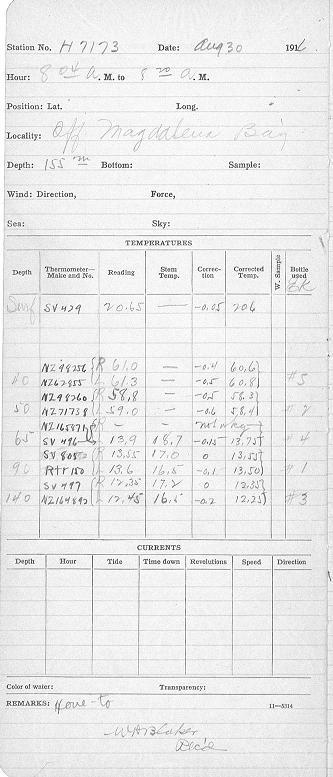 Station No. H7173 Date: Aug 30 1916
Hour: 8 04 A. M. to 8 20 A. M.
Position: Lat. Long.
Locality: Off Magdalena Bay
Depth: 155 m Bottom: Sample:
Wind: Direction, Force,
Sea: Sky:
TEMPERATURES
Depth Thermometer—Make and No. Reading Stem Temp. Correction Corrected Temp. W. Sample Bottle used
Surf SV 429 20.65 — -0.05 20.6
NZ 98256 R 61.0 — -0.4 60.6
40 NZ 62855 L 61.3 — -0.5 60.8 #5
NZ 98260 R 58.8 — -0.5 58.3
50 NZ 71738 L 59.0 — -0.6 58.4 #2
R — —
65 SV 496 L 13.9 18.7 -0.15 13.75 #4
R 13.55 17.0 0 13.55
90 Rtr 150 L 13.6 16.5 -0.1 13.50 #1
SV 497 R 12.35 17.2 0 12.35
140 NZ 164892 L 12.45 16.5 -0.2 12.25 #3
CURRENTS
Depth Hour Tide Time down Revolutions Speed Direction
Color of water: Transparency:
REMARKS: Hove-to 11—5314